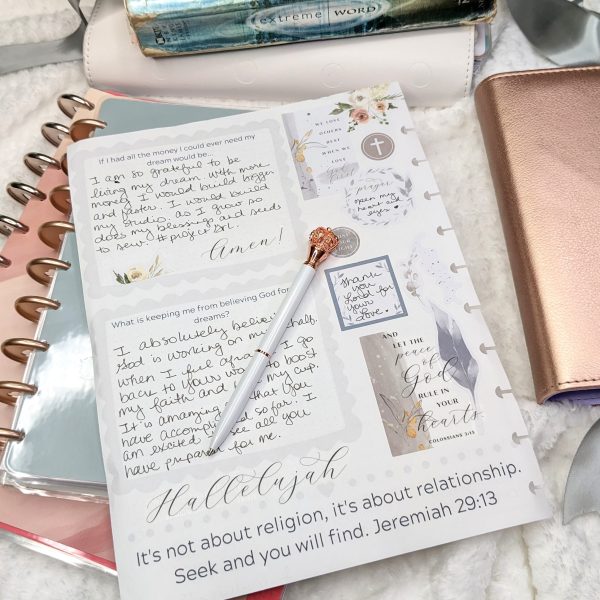 extreme WORD
If I had all the money I could ever need my
dream would be...
I am so grateful to be
living my dream with more
money I would build bigger
and faster. I would build
my studio. as I grow so
does my blessings and seeds
to sew. #project
Amen!
What is keeping me from believing God for
dreams?
I absolutely believe
God is working on my behalf.
when I feel afraid I go
back to your word to boost
my faith and my cup.
It is amanzing that you
have accomplished so far. I
am excited see all you
have prepared for me.
Hallelujah
It's not about religion, it's about relationship.
Seek and you will find. Jeremiah 29:13
WE LOVE
OTHERS
BEST
WHEN WE
LOVE
God
prayer
open my
heart and
eyes
thank
you
Lord for
your
love.
AND
LET THE
peace
of
God
RULE IN
YOUR
hearts
COLOSSIANS 3:15